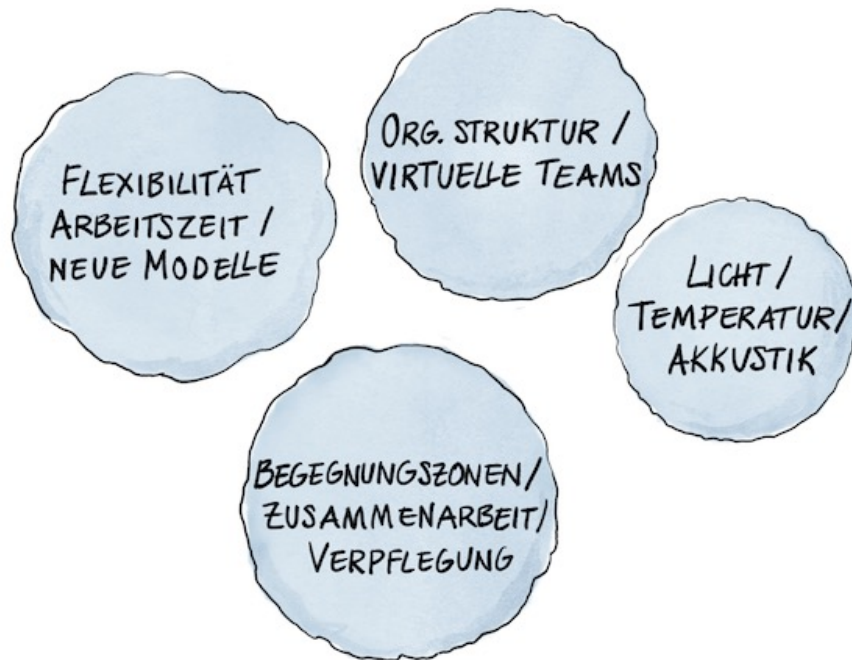 FLEXIBILITÄT
ARBEITSZEIT /
NEUE MODELLE
ORG. STRUKTUR /
VIRTUELLE TEAMS
LICHT /
TEMPERATUR/
AKKUSTIK
BEGEGNUNGSZONEN/
ZUSAMMENARBEIT/
VERPFLEGUNG